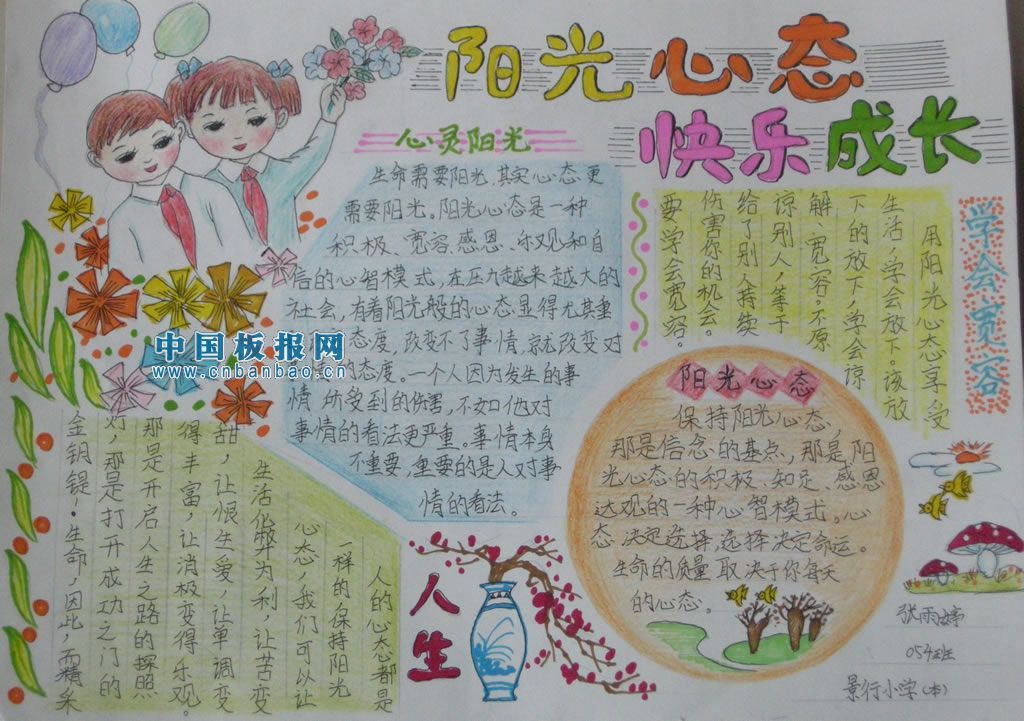 阳光心态
快乐成长
心灵阳光
生命需要阳光,其实心态更
需要阳光。阳光心态是一种
积极、宽容、感恩、乐观和自
信的心智模式,在压力越来越大的
社会,有着阳光般的心态显得尤其重
态度,改变不了事情,就改变对
的态度。一个人因为发生的事
情 所受到的伤害,不如他对
事情的看法更严重。事情本身
不重要,重要的是人对事
情的看法。
学会宽容
用阳光心态享受
生活,学会放下。该放
下的放下,学会谅
解、宽容。不原
谅别人,等于
给了别人持续
伤害你的机会。
要学会宽容。
阳光心态
保持阳光心态,
那是信念的基点,那是阳
光心态的积极、知足、感恩
达观的一种心智模式。心
态决定选择,选择决定命运。
生命的质量取决于你每天
的心态。
人生
人的心态都是
一样的保持阳光
心态,我们可以让
生活化弊为利,让苦变
甜,让恨生爱 让单调变
得丰富,让消极变得乐观。
那是开启人生之路的探照
灯,那是打开成功之门的
金钥匙!生命,因此,而精采
中国板报网
www.cnbanbao.cn
张雨婷
054班
景行小学(本)